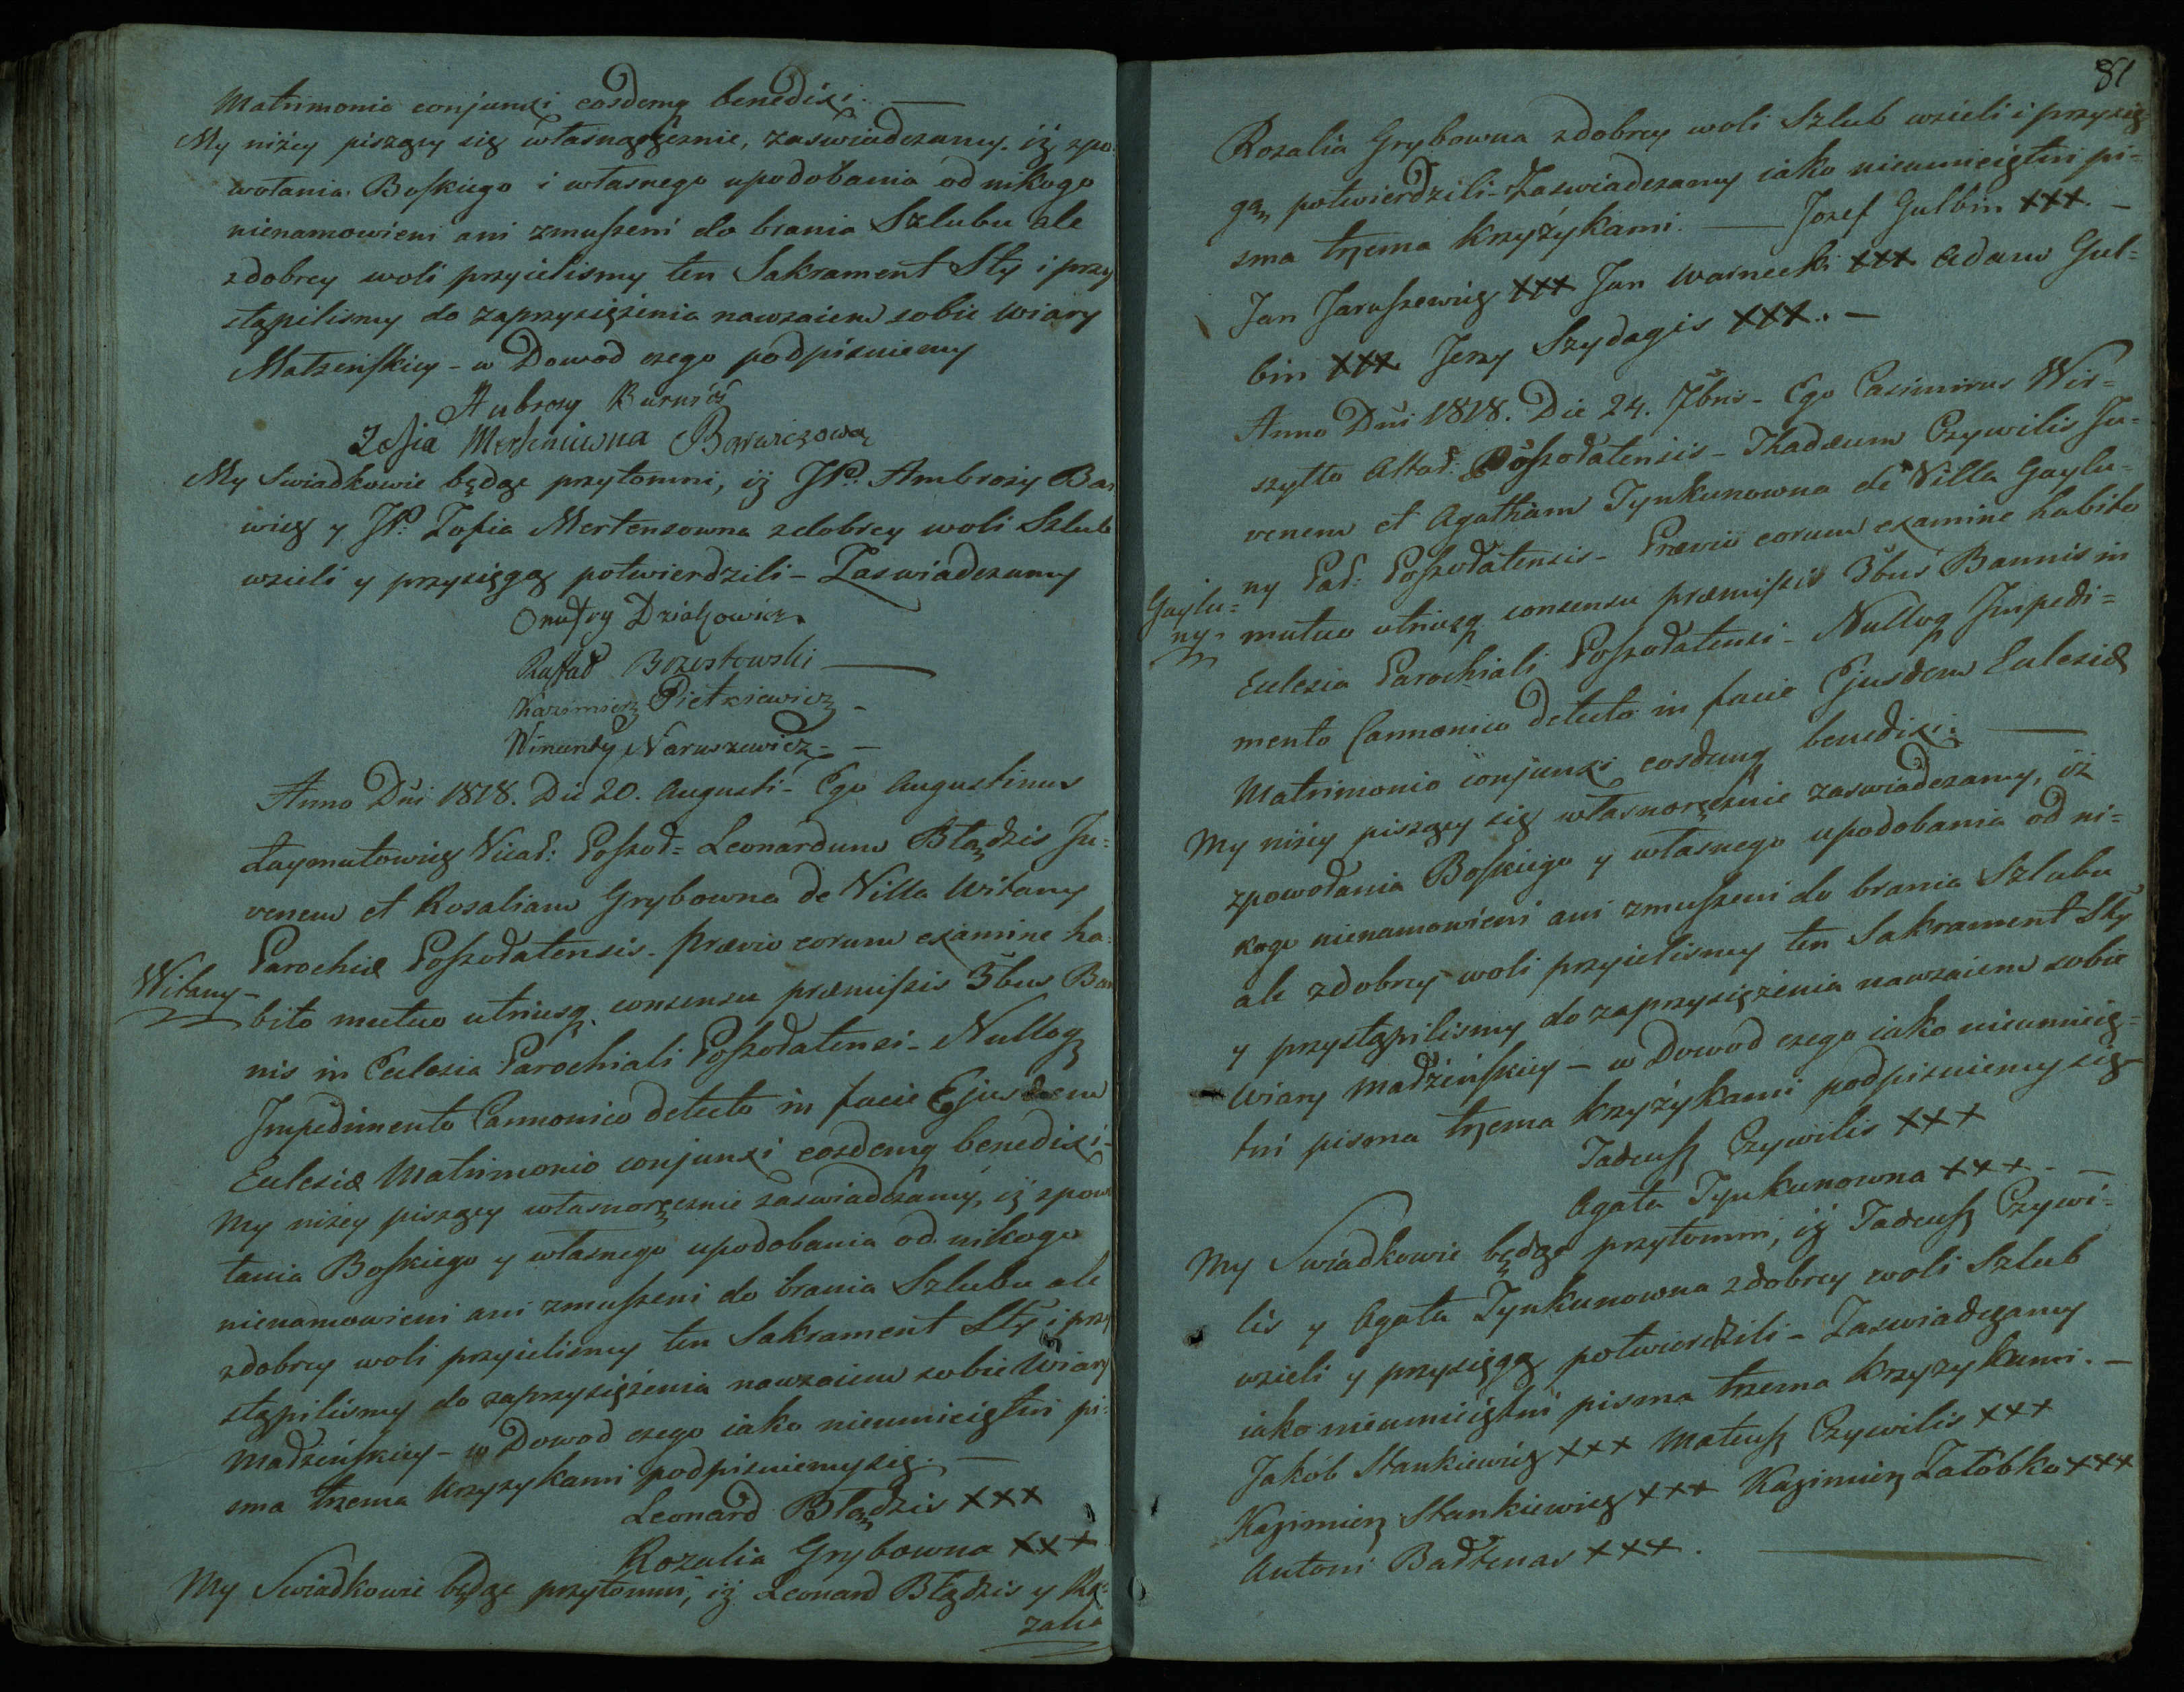 Matrimonio conjunxi eosdemq benedixi. —
My niżey piszący się własnoręcznie, zaswiadczamy. iż zpo-
wołania Boskiego i własnego upodobania od nikogo
nienamowieni ani zmuszeni do brania Szlubu ale
zdobrey woli przyielismy ten Sakrament Sty i przy
stąpilismy do zaprzysiężenia nawzaiem sobie Wiary
Małżenskiey - w Dowod czego podpisuiemy
Zofia Barwiczowa
My Swiadkowie będąc przytomni, iż JP. Ambrozy Bar
wicz y JP. Zofia Mertensowna zdobrey woli Szlub
wzieli y przysięgą potwierdzili - Zaswiadczamy
Onufry
Rafał Brzostowski —
Kazimierz Pietkiewicz -
Winenty Naruszewicz - —
Anno Dni 1818. Die 20. Augusti - Ego Augustinus
Taymutowicz Vicar: Poszod= Leonardum Błądzis Ju=
venem et Rosaliam Grybowna de Villa Witany
Parochiæ Poszodatensis - prævio eorum examine ha=
Witany -
bito mutuo utriusq consensu præmissis 3bus Ban
nis in Eclesia Parochiali Poszodatensi - Nulloq
Impedimento Cannonico detecto in facie Ejusdem
Eclesiæ Matrimonio conjunxi eosdemq benedixi -
My niżey piszący własnoręcznie zaswiadczamy, iż zpowo
łania Boskiego y własnego upodobania od nikogo
nienamowieni ani zmuszeni do brania Szlubu ale
zdobrey woli przyielismy ten Sakrament Sty i przy
stąpilismy do zaprzysiężenia nawzaiem sobie Wiary
Madżeńskiey - w Dowod czego iako nieumieiętni pi=
sma trzema krzyzykami podpisuiemy się. —
Leonard Błądzis XXX
Rozalia Grybowna XXX
My Swiadkowie będąc przytomni, iż Leonard Błądzis y Ro=
zalia
81
Rozalia Grybowna zdobrey woli Szlub wzieli i przysię
gą potwierdzili - Zaswiadczamy iako nieumieiętni pi=
sma trzema krzyżykami. — Jozef Gulbin XXX. —
Jan Jaruszewicz XXX Jan Warnecki XXX Adam Gul=
bin XXX Jerzy Szydagis XXX. —
Anno Dni 1818. Die 24. 7bris - Ego Casimirus Wir=
szyłło Altar: Poszodatensis - Thadæum Czywilis Ju=
venem et Agatham Tynkunowna de Villa Gaylu=
ny Par: Poszodatensis - Prævio eorum examine habito
Gaylu=
ny -
mutuo utriusq consensu præmissis 3bus Bannis in
Eclesia Parochiali Poszodatensi - Nulloq Impedi=
mento Cannonico detecto in facie Ejusdem Eclesiæ
Matrimonio conjunxi eosdemq benedixi. —
My niżey piszący się własnoręcznie zaswiadczamy, iż
zpowołania Boskiego y własnego upodobania od ni=
kogo nienamowieni ani zmuszeni do brania Szlubu
ale zdobrey woli przyielismy ten Sakrament Sty
y przystąpilismy do zaprzysiężenia nawzaiem sobie
Wiary Madżeńskiey - w Dowod czego iako nieumieię=
tni pisma trzema krzyżykami podpisuiemy się
Tadeusz Czywilis XXX
Agata Tynkunowna XXX - —
My Swiadkowie będąc przytomni, iż Tadeusz Czywi=
lis y Agata Tynkunowna zdobrey woli Szlub
wzieli y przysięgą potwierdzili - Zaswiadczamy
iako nieumieiętni pisma trzema krzyzykami. —
Jakób Stankiewicz XXX Mateusz Czywilis XXX
Kazimierz Stankiewicz XXX Kazimierz Zatobko XXX
Antoni Badtenas XXX. —